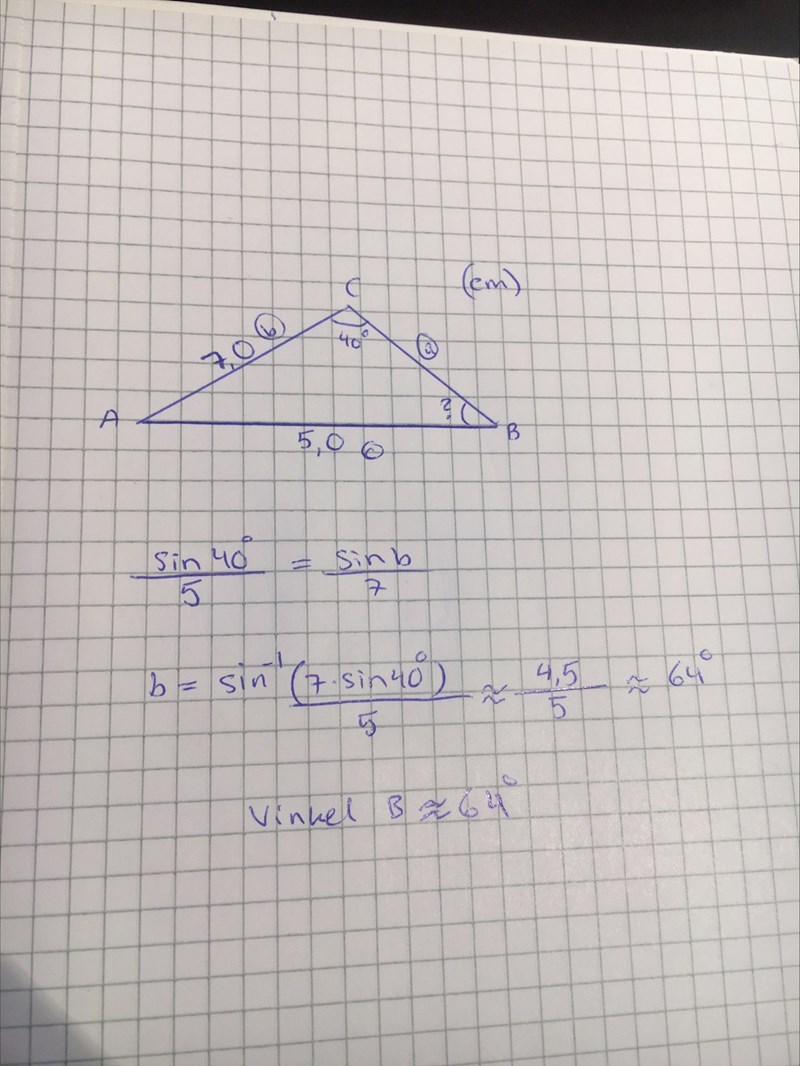 C (cm)
7,0 b 40° a
A ? B
5,0 c
sin 40° / 5 = sin b / 7
b = sin⁻¹ (7·sin40°) / 5 ≈ 4,5 / 5 ≈ 64°
Vinkel B ≈ 64°